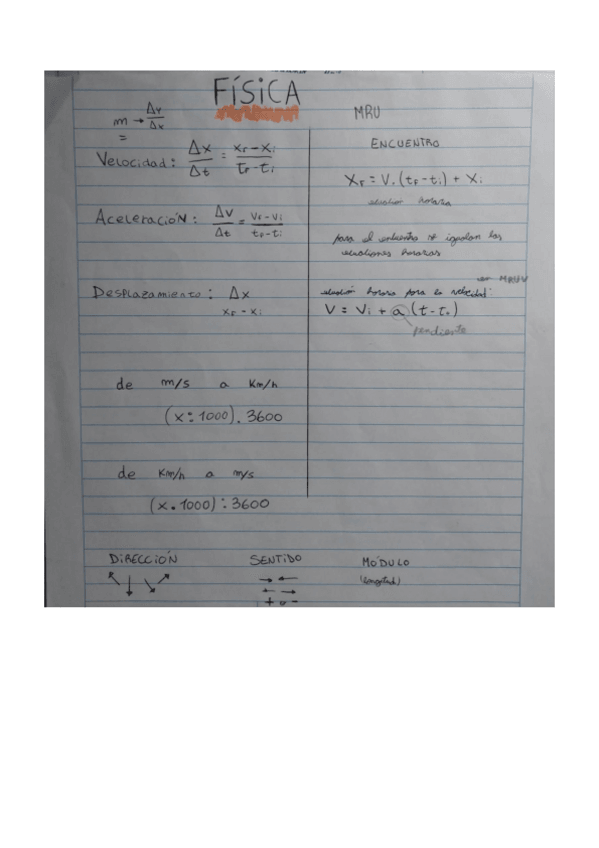 FÍSICA
m → Δy/Δx
=
Velocidad: Δx/Δt = xF-xi/tF-ti
Aceleración: ΔV/Δt = VF-Vi/tF-ti
Desplazamiento: Δx
xF - xi
de m/s a Km/h
(x : 1000) . 3600
de Km/h a m/s
(x . 1000) : 3600
MRU
ENCUENTRO
XF = V. (tF - ti) + Xi
ecuación horaria
para el encuentro se igualan las
ecuaciones horarias
en MRUV
ecuación horaria para la velocidad:
V = Vi + a (t - t₀)
pendiente
DIRECCIÓN SENTIDO MÓDULO
(longitud)
→ ←
← →
+ o -